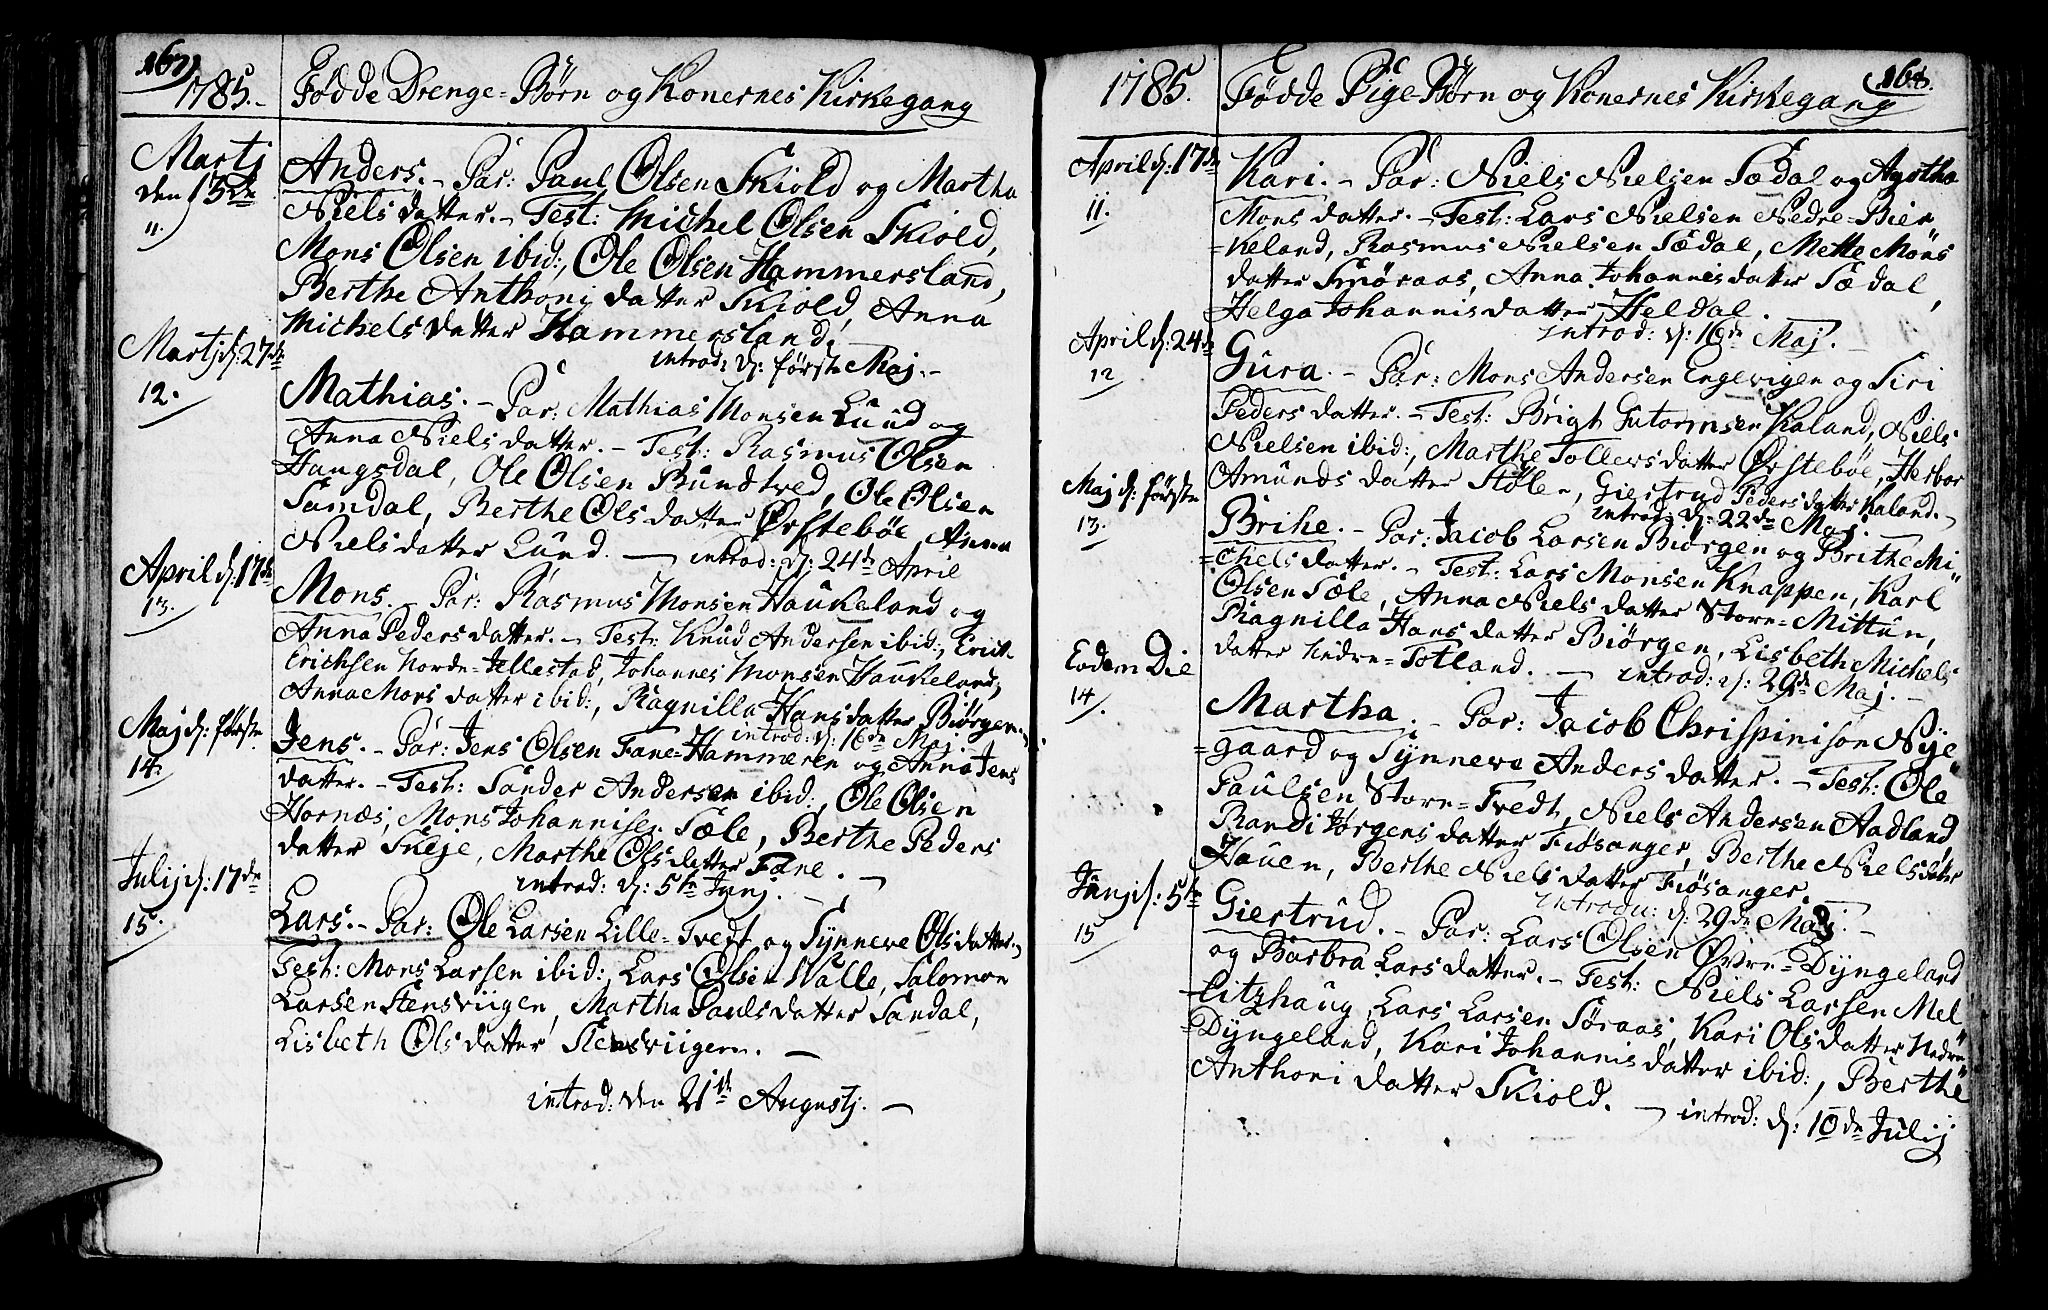 167.
1785.- Fødde Drenge-Børn og Konernes Kirkegang
Martj
den 13de
11.
Anders. - Par: Paul Olsen Skiold og Martha
Niels datter. - Test: Michel Olsen Skiold,
Mons Olsen ibid:, Ole Olsen Hammersland,
Berthe Anthonj datter Skiold, Anna
Michels datter Hammersland.
introd: d: første Maj. -
Martj d: 27de
12.
Mathias. - Par: Mathias Monsen Lund og
Anna Niels datter. - Test: Rasmus Olsen
Haugsdal, Ole Olsen Bundtved, Ole Olsen
Samdal, Berthe Ols datterØrstebøe, Anna
Niels datter Lund. - introd: d: 24de April
April d: 17de
13.
Mons. - Par: Rasmus Monsen Haukeland og
Anna Peders datter. - Test: Knud Andersen ibid:, Erick
Erichsen Nordre-Jllestad, Johannes Monsen Haukeland,
Anna Mons datter ibid:, Ragnilla Hans datter Biørgen.
introd: d: 16de Maj. -
Maj d: første
14.
Jens. - Par: Jens Olsen Fane-Hammeren og Anna Jens
datter. - Test: Sander Andersen ibid:, Ole Olsen
Hornæs, Mons Johannisen Sæle, Berthe Peders
datter Skeje, Marthe Ols datter Fane. -
introd: d: 5te Junj. -
Julij d: 17de
15.
Lars. - Par: Ole Larsen Lille-Tvedt og Synneve Ols datter.
Test: Mons Larsen ibid:, Lars Olsen Walle, Salomon
Larsen Stensviigen, Martha Pauls datter Sandal,
Lisbeth Ols datter Stensviigen. -
introd: den 21de Augustj. -
1785. Fødde Pige-Børn og Konernes Kirkegang
168.
April d: 17de
11.
Kari. - Par: Niels Nielsen Sædal og Agatha
Mons datter. - Test: Lars Nielsen Nedre-Bir
=keland, Rasmus Nielsen Sædal, Mette Mons
datter Smøraas, Anna Johannis datter Sædal,
Helga Johannis datter Heldal.
introd: d: 16de Maj. -
April d: 24de
12
Gura. - Par: Mons Andersen Engevigen og Siri
Peders datter. - Test: Brigt Gutormsen Kaland, Niels
Nielsen ibid:, Marthe Tollevs datter Ørstebøe, Herbor
Amunds datter Stølen, Giertrud Peders datter Kaland. -
introd: d: 22de Maj. -
Maj d: første
13.
Brihe. - Par: Jacob Larsen Biørgen og Brithe Mi
=chels datter. - Test: Lars Monsen Knappen, Karl
Olsen Sæle, Anna Niels datter Store-Mittun,
Ragnilla Hans datter Biørgen, Lisbeth Michels
datter Nedre-Totland. - introd: d: 29de Maj. -
Eodem Die
14.
Martha. - Par: Jacob Chrispinison Nye
=gaard og Synneve Anders datter. - Test: Ole
Paulsen Store-Tvedt, Niels Andersen Aadland,
Randi Jørgens datter Fiøsanger, Berthe Niels datter
Hauen, Berthe Niels datter Fiøsanger.
introdu: d: 29de Maj. -
Junj d: 5te
15
Giertrud. - Par: Lars Olsen Øvre-Dyngeland
og Barbra Lars datter. - Test: Niels Larsen Mel
=Litzhaug, Lars Larsen Søraas, Kari Ols datter Nedre
=Dyngeland, Kari Johannis datter ibid:, Berthe
Anthoni datter Skiold. - introd: d: 10de Julij